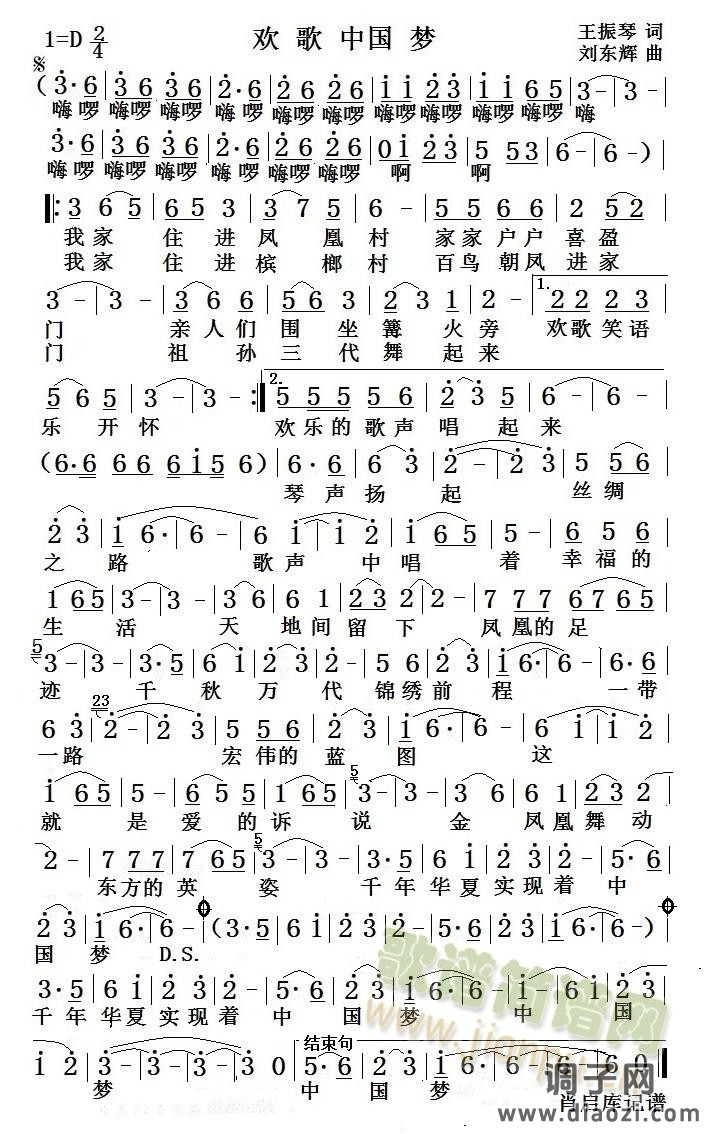 1=D 2/4 欢 歌 中国 梦 王振琴 词
刘东辉 曲
(3·6 36 36 | 2·6 26 26 | 11 23 | 11 65 | 3- | 3- |
嗨啰嗨啰嗨啰 嗨啰嗨啰嗨啰 嗨啰嗨啰嗨啰嗨啰嗨
3·6 36 36 | 2·6 26 26 | 01 23 | 5 53 | 6- | 6- )
嗨啰嗨啰嗨啰 嗨啰嗨啰嗨啰 啊 啊
|: 3 65 | 65 3 | 3 75 | 6 - | 55 56 | 2 52 |
我家 住进凤凰村 家家户户喜盈
我家 住进槟榔村 百鸟朝凤进家
3- | 3- | 36 6 | 56 3 | 23 1 | 2- | 1. 22 23 |
门 亲人们围坐篝火旁 欢歌笑语
门 祖孙三代舞起来
565 | 3- | 3- :| 2. 55 55 56 | 2·3 5 | 6- | 6- |
乐开怀 欢乐的歌声唱起来
(6·6 66 | 6615 6) | 6·5 | 6 3 | 2- | 2 3 | 5 56 |
琴声扬起 丝绸
2 3 | 16· | 6- | 61 | 12 | 1 65 | 5- | 6 56 |
之路 歌声中唱着幸福的
1 65 | 3- | 3- | 3 36 | 6 1 | 23 2 | 2- | 77 7 | 67 65 |
生活 天地间留下 凤凰的足
5 3- | 3- | 3·5 | 6 1 | 2 3 | 1 2 | 7 6 | 5 6 | 5·6 | 5 56 |
迹 千秋万代锦绣前程 一带
6 3 | 23 2- | 2 3 | 5 56 | 2 3 | 16· | 6· | 61 | 12 |
一路 宏伟的蓝图 这
1 65 | 5- | 6 56 | 1 65 | 5 3- | 3- | 3 6 | 6 1 | 23 2 |
就是爱的诉说 金凤凰舞动
2- | 77 7 | 67 65 | 5 3- | 3- | 3·5 | 6 1 | 2 3 | 2- | 5·6 |
东方的英姿 千年华夏实现着中
2 3 | 16· | 6- | (3·5 | 6 1 | 2 3 | 2- | 5·6 | 23 | 16· | 6-)
国梦 D.S.
3·5 | 6 1 | 2 3 | 2- | 5·6 | 2 3 | 16· | 6- | 5·6 | 2 3 |
千年华夏实现着中国梦 中国
1 2 | 3- | 3- | 3- | 3 0 | 结束句 5·6 | 2 3 | 6- | 6- | 6- | 6 0 |
梦 中国梦
歌谱简谱网
www.jianpu.cn
调子网
肖启库记谱
www.diaozi.com